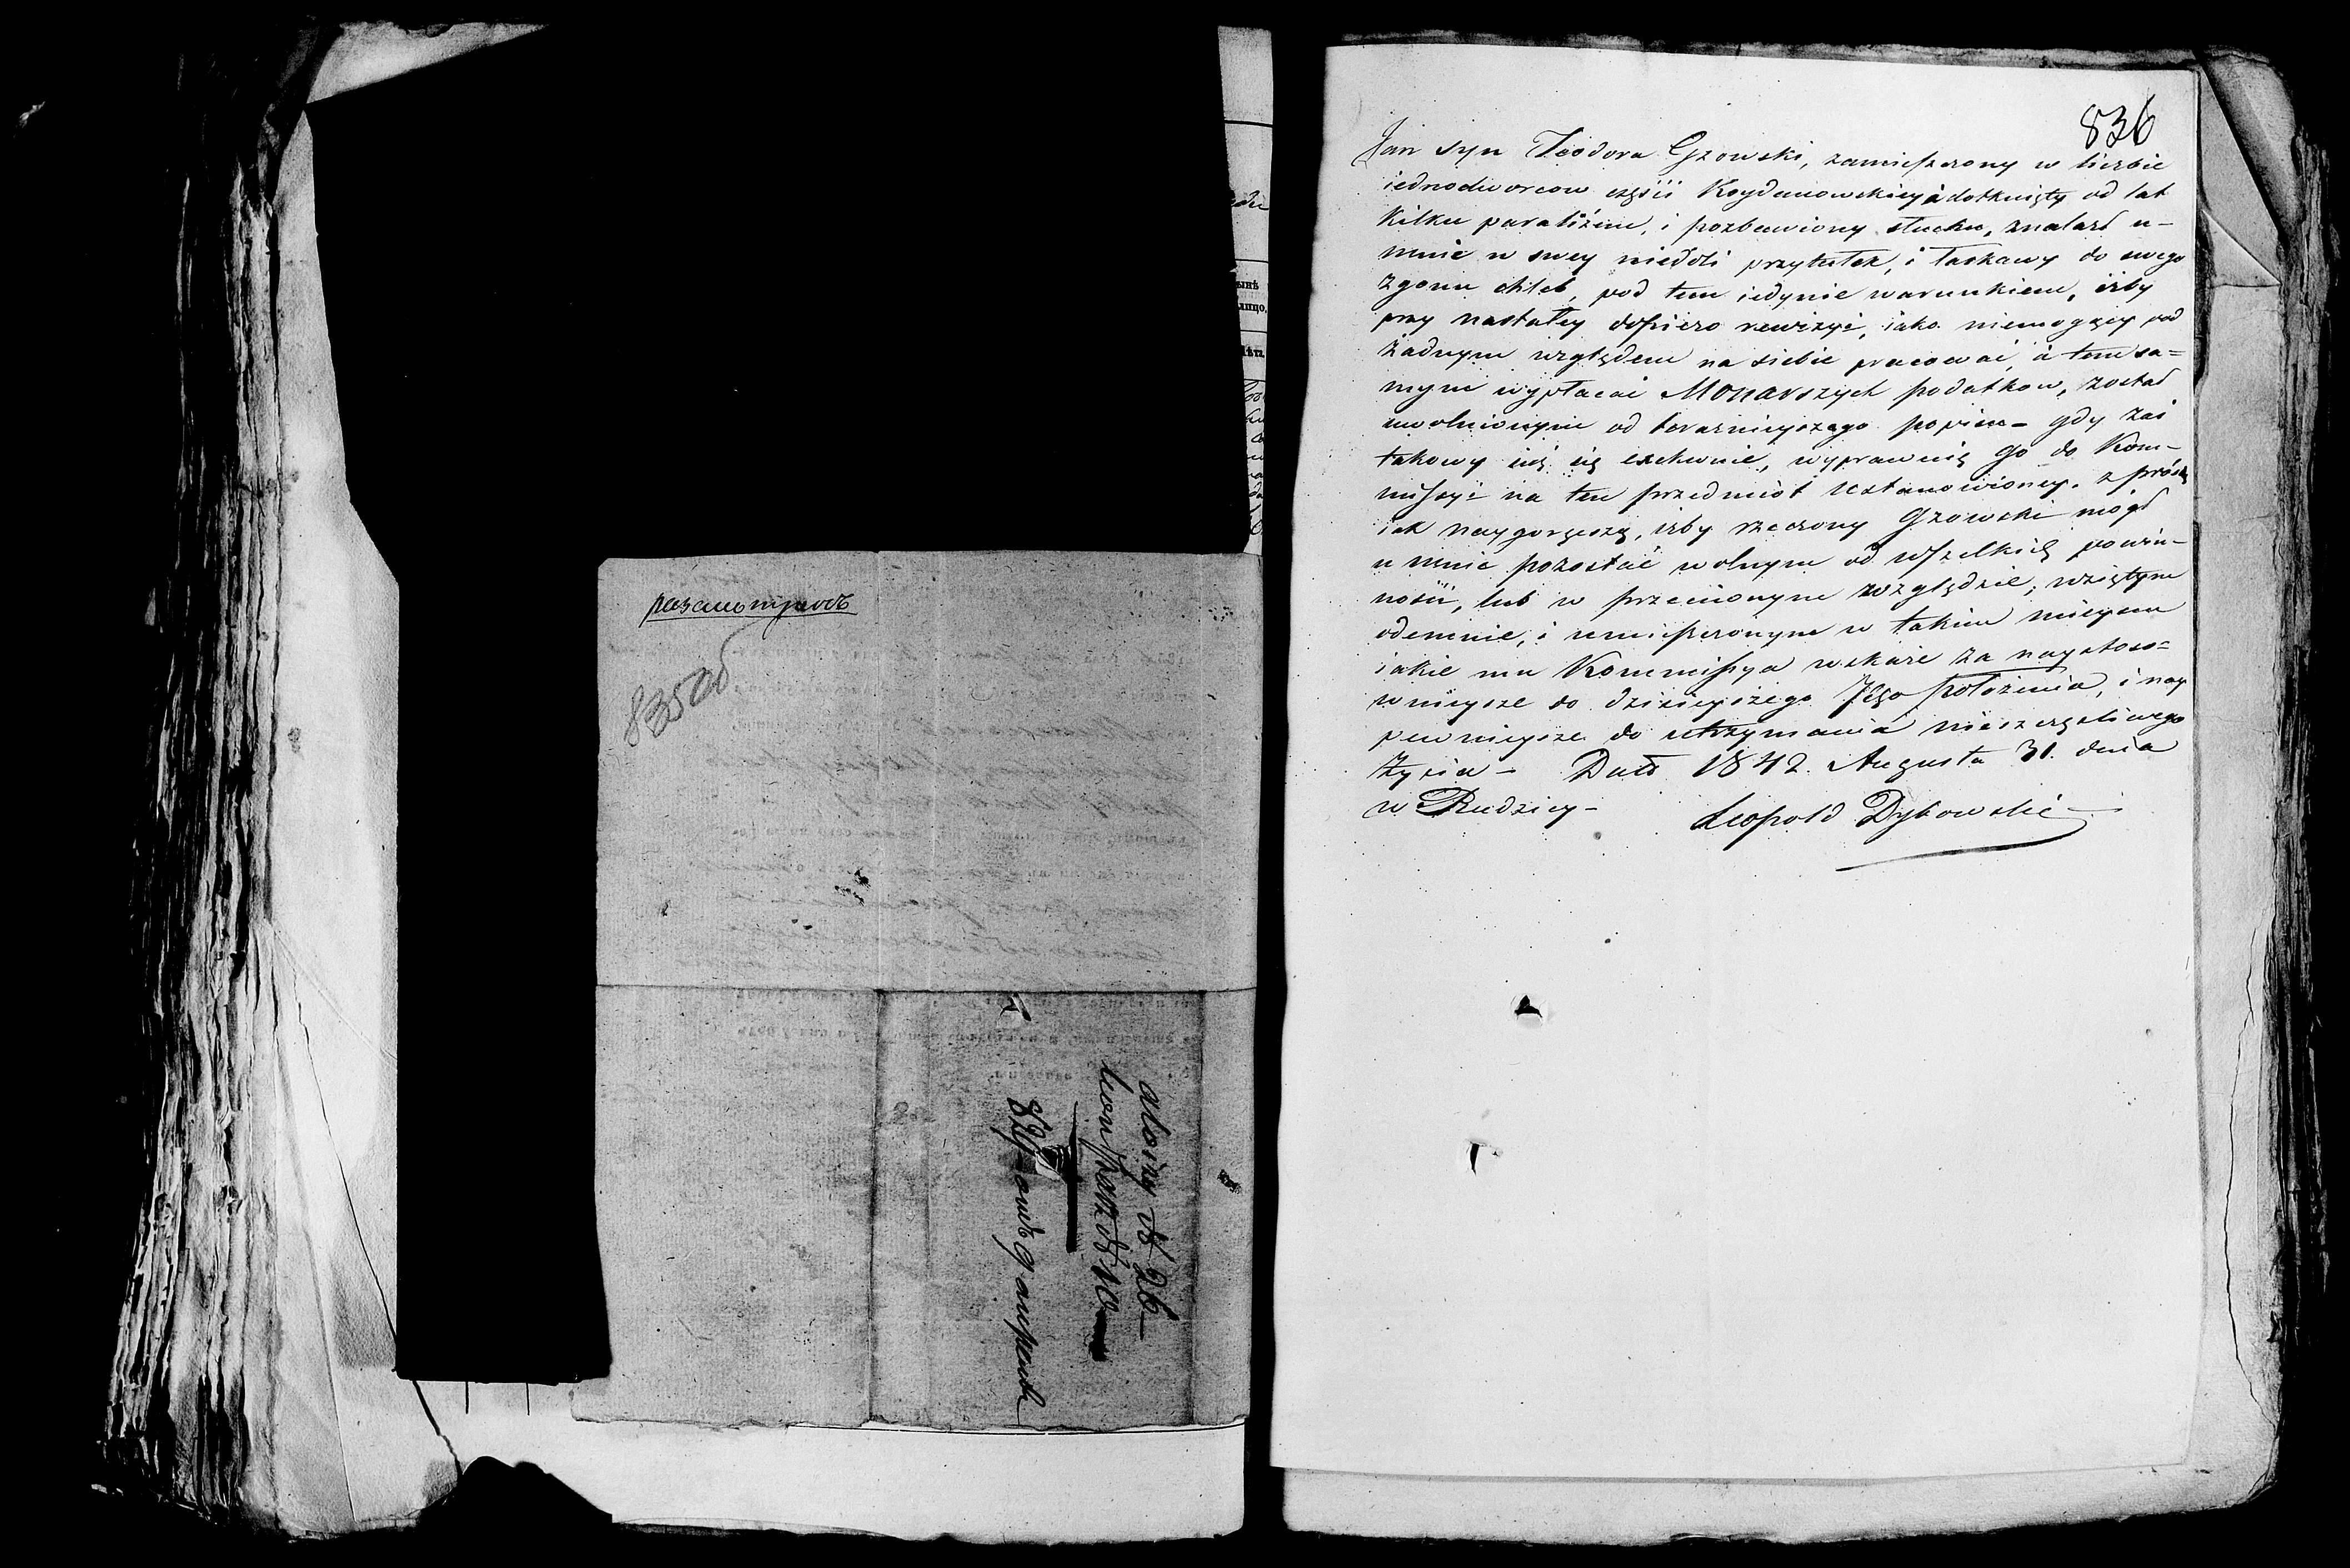 разсмотрѣть
835об
Alojzy
836
Jan syn Teodora Gzowski, zamieszczony w liczbie
iednodworcow części Koydanowskiey à dotknięty od lat
kilku paraliżem, i pozbawiony słuchu, znalazł u-
mnie w swey niedoli przytułek, i łaskawy do swego
zgonu chleb, pod tem iedynie warunkiem, iżby
przy nastałey dopiero rewizyi, iako niemogący pod
żadnym względem na siebie pracować, à tem sa=
mym wypłacać Monarszych podatkow, został
uwolnionym od teraznieyszego popisu - gdy zaś
takowy iuż się exekwuie, wyprawuię go do Kom-
missyi na ten przedmiot ustanowioney. z prośbą
iak naygoręszą, iżby rzeczony Gzowski mógł
u mnie pozostać wolnym od wszelkiey powin-
ności, lub w przeciwnym względzie, wziętym
odemnie, i umieszczonym w takim mieyscu
iakie mu Kommissya wskaże za naystoso=
wnieysze do dzisieyszego Jego położenia, i nay
pewnieysze do utrzymania nieszczęśliwego
życia - Dnia 1842. Augusta 31. dnia
w Rudzicy -
Leopold Dybowski